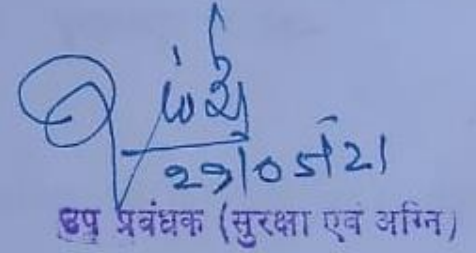 29/05/21
उप प्रबंधक (सुरक्षा एवं अग्नि)